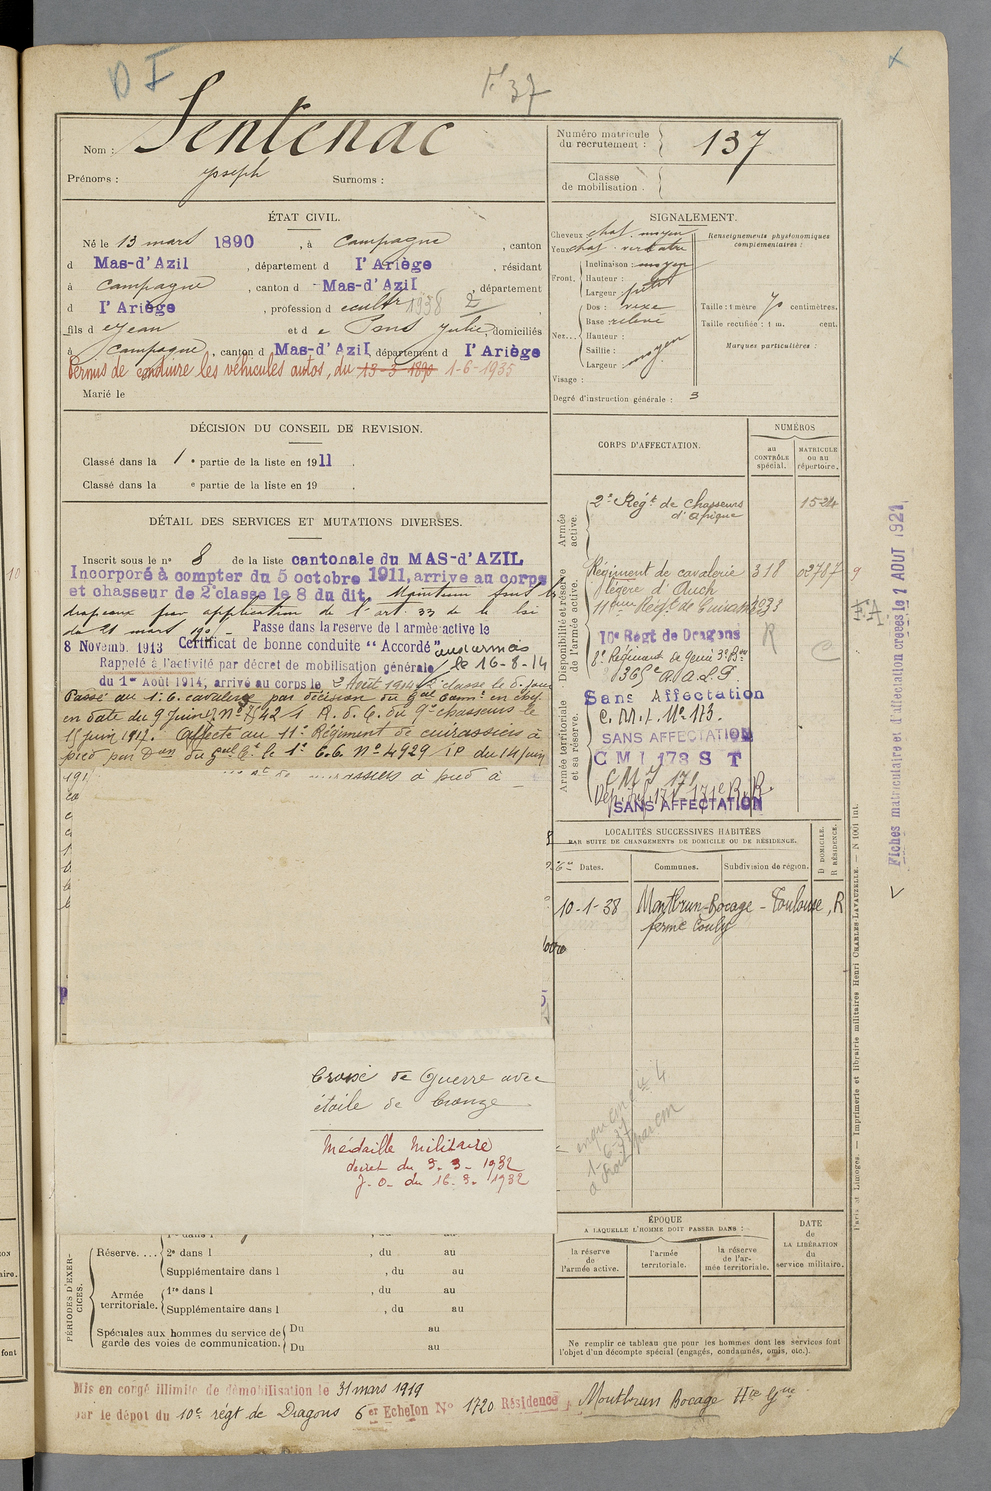 D I
F 37
Nom : Sentenac
Prénoms : Joseph Surnoms :
Numéro matricule du recrutement : 137
Classe de mobilisation .
ÉTAT CIVIL.
Né le 13 mars 1890, à Campagne, canton
d Mas-d'Azil, département d l'Ariège, résidant
à Campagne, canton d Mas-d'Azil, département
d l'Ariège, profession d 1938 2
fils d e Jean et d e Pons Julie, domiciliés
à Campagne, canton d Mas-d'Azil, département d l'Ariège
Permis de conduire les véhicules autos, du 13-3-1890 1-6-1935
Marié le
SIGNALEMENT.
Cheveux chat. moyen
Yeux chat. verdatre
Front. Inclinaison : moyen
Hauteur :
Largeur : petit
Nez... Dos : vexe
Base : relevé
Hauteur :
Saillie :
Largeur : moyen
Visage :
Degré d'instruction générale : 3
Renseignements physionomiques complémentaires :
Taille : 1 mètre 70 centimètres.
Taille rectifiée : 1 m. cent.
Marques particulières :
DÉCISION DU CONSEIL DE REVISION.
Classé dans la 1 e partie de la liste en 1911 .
Classé dans la e partie de la liste en 19 .
DÉTAIL DES SERVICES ET MUTATIONS DIVERSES.
Inscrit sous le n° 8 de la liste cantonale du MAS-d'AZIL
Incorporé à compter du 5 octobre 1911, arrive au corps
et chasseur de 2e classe le 8 du dit. Maintenu sous les
drapeaux par application de l'art 33 de la loi
du 21 mars 190 - Passe dans la réserve de l'armée active le
8 Novemb. 1913 Certificat de bonne conduite "Accordé" aux armées
Rappelé à l'activité par décret de mobilisation générale le 16-8-14
du 1er Août 1914, arrivé au corps le 2 Août 1914
Passé au 1er C. cavalerie par décision du Gal Comt en chef
en date du 9 Juin N° 7542 1 R. d. C. du 9e chasseurs le
15 juin 1917. Affecté au 11e Régiment de cuirassiers à
pied par Don du Gal Ct le 1er C.C. N° 4929 1P du 14 Juin
191
à pied à
CORPS D'AFFECTATION.
NUMÉROS
au CONTRÔLE spécial.
MATRICULE ou au répertoire.
Armée active.
2e Régt de Chasseurs d'Afrique 1524
Disponibilité et réserve de l'armée active.
Régiment de cavalerie 318 02787 9
légère d'Auch
11ème Régt de Cuirass
10e Régt de Dragons R
8e Régiment de Génie 3e Bon C
Armée territoriale et sa réserve.
Sans Affectation
C. M. I. N° 173.
SANS AFFECTATION
C M I 178 S T
C M I 171
SANS AFFECTATION
F.A.
Fiches matriculaire et d'affectation créées le 7 AOUT 1921
LOCALITÉS SUCCESSIVES HABITÉES
PAR SUITE DE CHANGEMENTS DE DOMICILE OU DE RÉSIDENCE.
Dates. Communes. Subdivision de région. D DOMICILE. R RÉSIDENCE.
10-1-38 Montbrun-Bocage - Toulouse, R
ferme Couly
Croix de Guerre avec
étoile de bronze
Médaille Militaire
décret du 5. 3 - 1932
J. O. du 16. 3. 1932
PÉRIODES D'EXERCICES.
Réserve....
2e dans l , du au
Supplémentaire dans l , du au
Armée territoriale.
1re dans l , du au
Supplémentaire dans l , du au
Spéciales aux hommes du service de garde des voies de communication.
Du au
Du au
ÉPOQUE
A LAQUELLE L'HOMME DOIT PASSER DANS :
la réserve de l'armée active.
l'armée territoriale.
la réserve de l'armée territoriale.
DATE de LA LIBÉRATION du service militaire.
Ne remplir ce tableau que pour les hommes dont les services font
l'objet d'un décompte spécial (engagés, condamnés, omis, etc.).
Paris et Limoges. — Imprimerie et librairie militaires Henri CHARLES-LAVAUZELLE. — N 1001 int.
Mis en congé illimité de démobilisation le 31 mars 1919
par le dépôt du 10e régt de Dragons 6er Echelon N° 1720 Résidence Montbrun Bocage Hte Gne